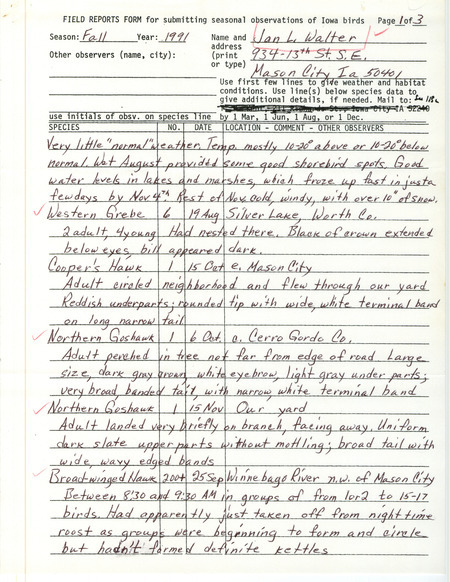 FIELD REPORTS FORM for submitting seasonal observations of Iowa birds Page 1 of 3
Season: Fall Year: 1991 Name and Jan L. Walter
Other observers (name, city): address 934-13th St. S.E.
(print
or type) Mason City, Ia 50401
Use first few lines to give weather and habitat
conditions. Use line(s) below species data to
give additional details, if needed. Mail to:
Iowa City IA 52240
use initials of obsv. on species line by 1 Mar, 1 Jun, 1 Aug, or 1 Dec.
SPECIES NO. DATE LOCATION - COMMENT - OTHER OBSERVERS
Very little "normal" weather. Temp. mostly 10-20° above or 10-20° below
normal. Wet August provided some good shorebird spots. Good
water levels in lakes and marshes, which froze up fast in just a
few days by Nov 4th. Rest of Nov. cold, windy, with over 10" of snow.
Western Grebe 6 19 Aug Silver Lake, Worth Co.
2 adult, 4 young Had nested there. Black of crown extended
below eyes, bill appeared dark.
Cooper's Hawk 1 15 Oct e. Mason City
Adult circled neighborhood and flew through our yard
Reddish underparts; rounded tip with wide, white terminal band
on long narrow tail
Northern Goshawk 1 6 Oct. c. Cerro Gordo Co.
Adult perched in tree not far from edge of road Large
size, dark gray crown, white eyebrow, light gray under parts;
very broad banded tail, with narrow, white terminal band
Northern Goshawk 1 15 Nov Our yard
Adult landed very briefly on branch, facing away. Uniform
dark slate upperparts without mottling; broad tail with
wide, wavy edged bands
Broad-winged Hawk 200+ 25 Sep Winnebago River n.w. of Mason City
Between 8:30 and 9:30 AM in groups of from 1 or 2 to 15-17
birds. Had apparently just taken off from night time
roost as groups were beginning to form and circle
but hadn't formed definite kettles